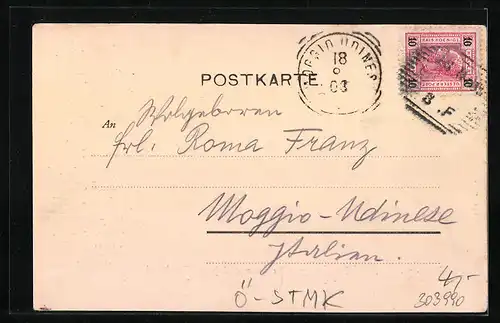 MOGGIO UDINESE
18
8
03
10 10
POSTKARTE
8.F
An Wolgeboren
Frl. Roma Franz
Moggio-Udinese
Italien.
4,-
Ö-STMK
303990